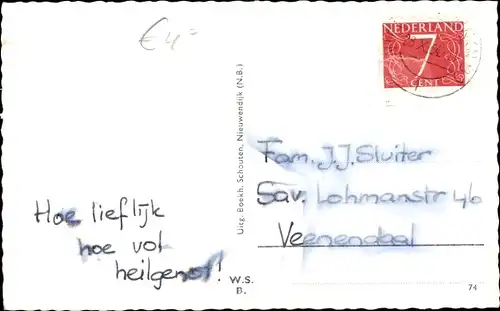 € 4=
NEDERLAND
7
CENT
Uitg. Boekh. Schouten, Nieuwendijk (N.B.)
Fam. J.J. Sluiter
Sav. Lohmanstr 46
Veenendaal
Hoe lieflijk
hoe vol
heilgenot!
W.S.
B.
74